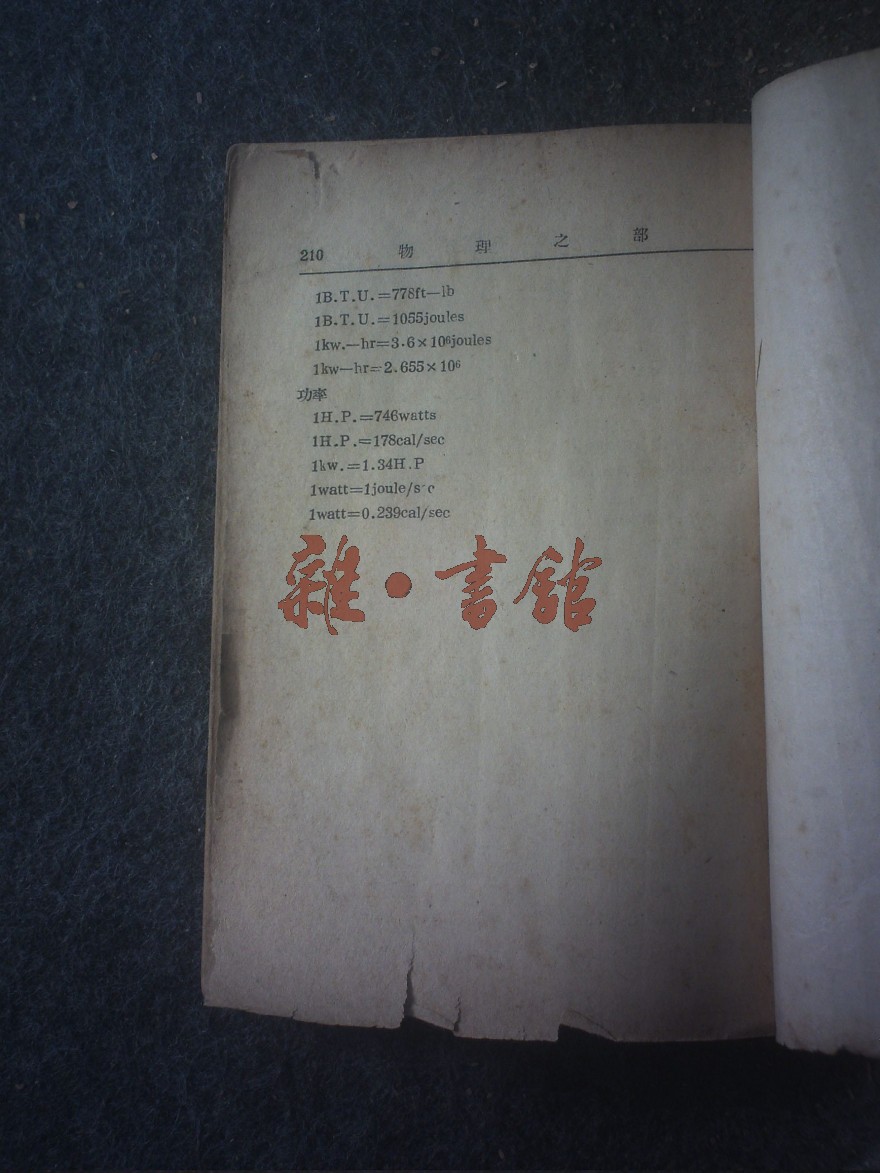 210 物理之部
1B.T.U.=778ft—lb
1B.T.U.=1055joules
1kw.—hr=3.6×10⁶joules
1kw—hr=2.655×10⁶
功率
1H.P.=746watts
1H.P.=178cal/sec
1kw.=1.34H.P
1watt=1joule/sec
1watt=0.239cal/sec
雜·書館